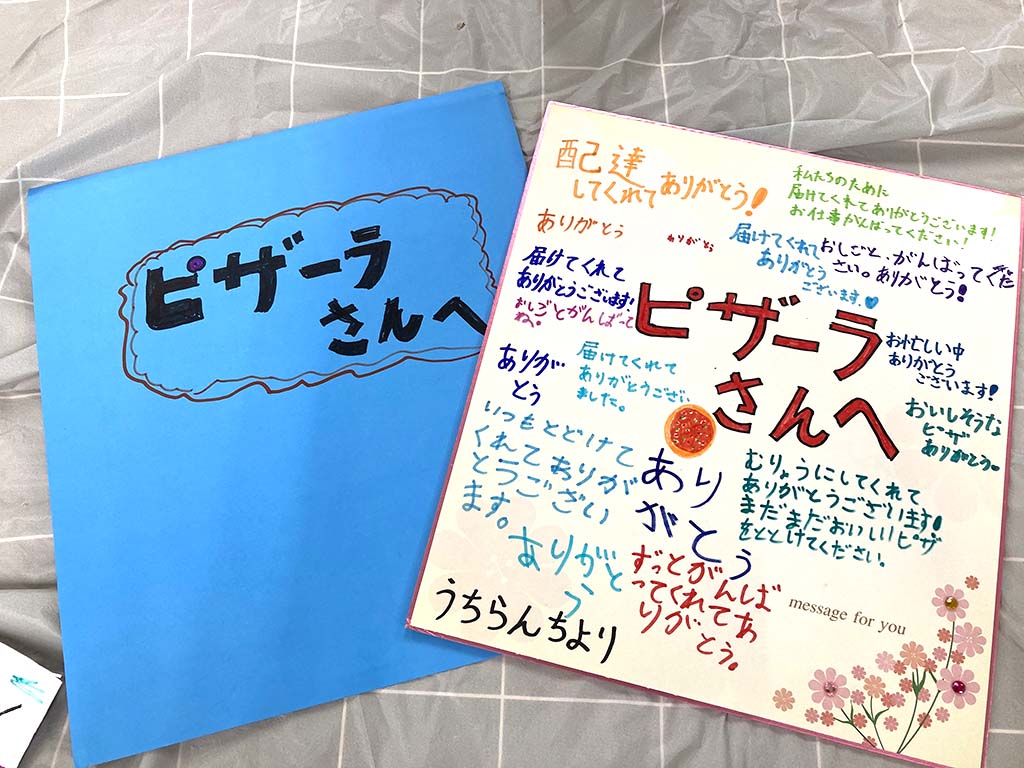 ピザーラ
さんへ
配達
してくれて
ありがとう!
私たちのために
届けてくれてありがとうございます!
お仕事がんばってください!
ありがとう
ありがとう
届けてくれて
ありがとう
ございます。
おしごと、がんばってくだ
さい。ありがとう!
届けてくれて
ありがとうございます!
おしごとがんばって
ね。
ピザーラ
さんへ
お忙しい中
ありがとう
ございます!
ありが
とう
届けてくれて
ありがとうござい
ました。
おいしそうな
ピザ
ありがとうー
いつもとどけて
くれてありが
とうござい
ます。
あり
がとう
むりょうにしてくれて
ありがとうございます!
まだまだおいしいピザ
をととけてください。
ありがと
う
ずっとがんば
ってくれてあ
りがとう。
うちらんちより
message for you